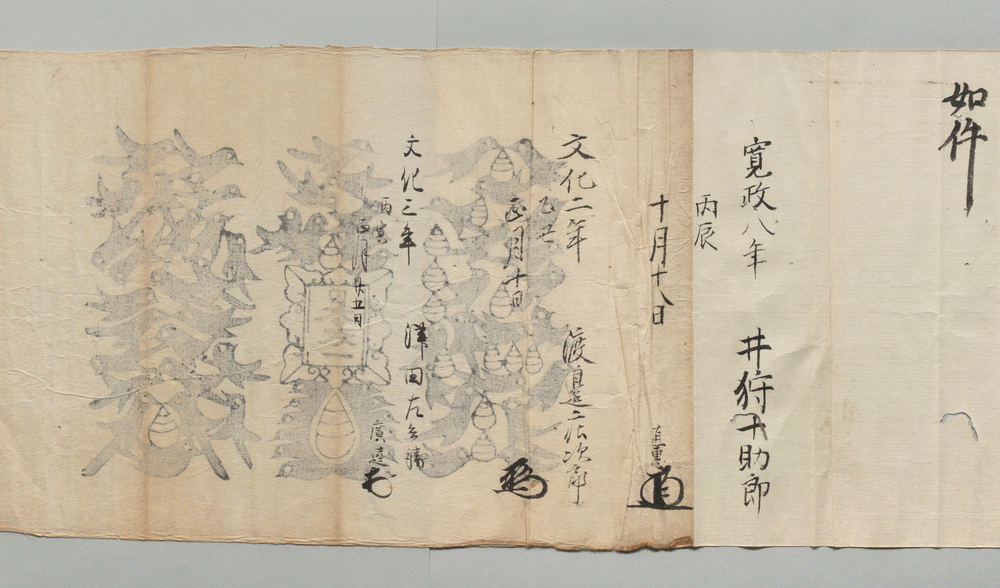 如件
寛政八年 井狩十助
丙辰
十月十八日
直恵
文化二年 渡邉庄次郎
乙丑
正月十一日
文化三年 澤田左兵衛
丙寅
正月廿五日
廣達